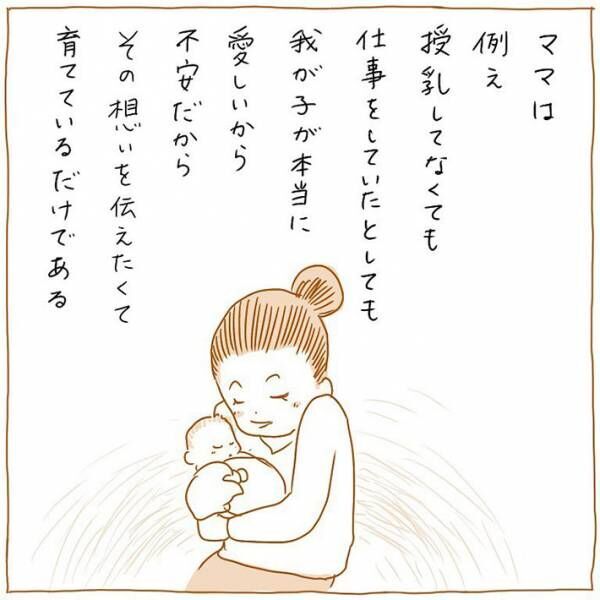 ママは
例え
授乳してなくても
仕事をしていたとしても
我が子が本当に
愛しいから
不安だから
その想いを伝えたくて
育てているだけである